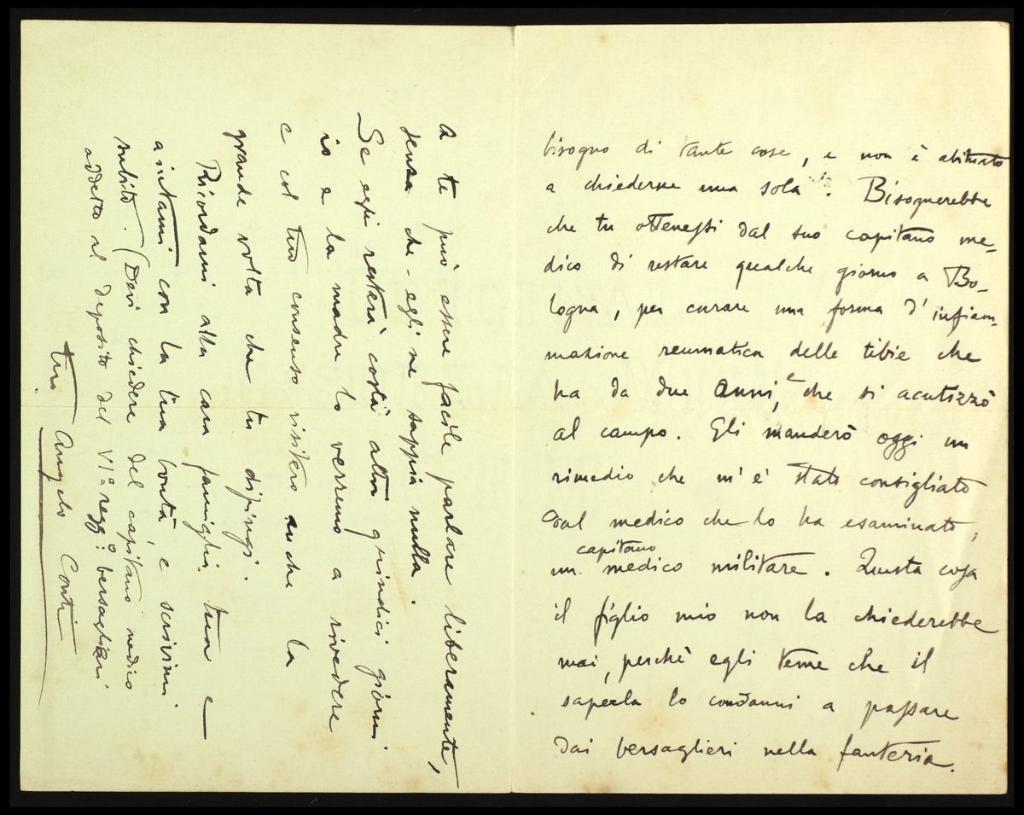 bisogno di tante cose, e non è abituato
a chiederne una sola. Bisognerebbe
che tu ottenessi dal suo capitano me-
dico di restare qualche giorno a Bo-
logna, per curare una forma d'infiam-
mazione reumatica delle tibie che
ha da due anni, e che si acutizzò
al campo. Gli manderò oggi un
rimedio che m'è stato consigliato
dal medico che lo ha esaminato,
un capitano medico militare. Questa cosa
il figlio mio non la chiederebbe
mai, perchè egli teme che il
saperla lo condanni a passare
dai bersaglieri nella fanteria.
A te può essere facile parlare liberamente,
senza che egli ne sappia nulla.
Se egli resterà costà altri quindici giorni
io e la madre lo verremo a rivedere
e col tuo consenso visiterò anche la
grande volta che tu dipingi.
Ricordami alla cara famiglia tua e
aiutami con la tua bontà e scrivimi
subito. (Devi chiedere del capitano medico
addetto al deposito del VIº regg.º bersaglieri
tuo Angelo Conti